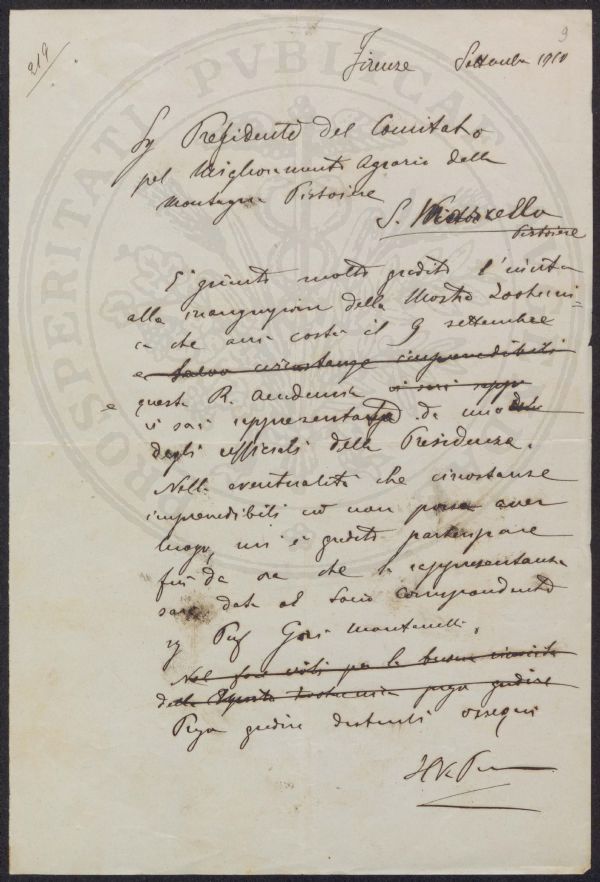 9
219
Firenze Settembre 1910
Sg Presidente del Comitato
pel Miglioramento Agrario della
Montagna Pistoiese
S. Marcello
Pistoiese
È giunto molto gradito l'invito
alla inaugurazione della Mostra Zootecni-
ca che avrà costà il 9 settembre
e salvo circostanze imprevedibili
questa R. Accademia vi sarà rappre
e vi sarà rappresentata da uno
degli ufficiali della Presidenza.
Nella eventualità che circostanze
imprevedibili ciò non possa aver
luogo, mi è gradito partecipare
fin da ora che la rappresentanza
sarà data al Socio corrispondente
Prof Gori Montanelli.
Nel far voti per la buona riuscita
della Mostra Zootecnica prego gradire
Prego gradire distinti ossequi
Il V. Pres
PROSPERITATI PVBLICAE